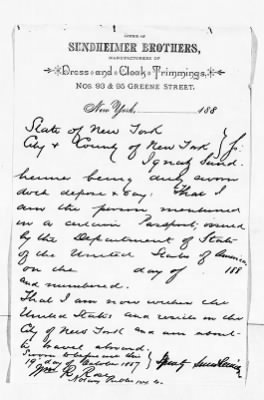 OFFICE OF
SUNDHEIMER BROTHERS,
MANUFACTURERS OF
Dress and Cloak Trimmings,
Nos. 93 & 95 GREENE STREET.
New York, 188
State of New York
City & County of New York } ss:
Ignatz Sund-
heimer being duly sworn
doth depose & say: That I
am the person mentioned
in a certain Passport, issued
by the Department of State
of the United States of America
on the day of 188
and numbered.
That I am now within the
United States and reside in the
City of New York and am about
to travel abroad.
Sworn to before me this
19th day of October 1887 } Ignatz Sundheimer
Wm R. Rose
Notary Public